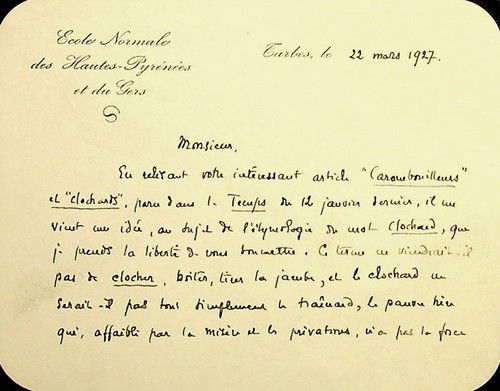 Ecole Normale
des Hautes-Pyrénées
et du Gers
Tarbes, le 22 mars 1927.
Monsieur,
En relisant votre intéressant article "Carambouilleurs"
et "clochards", paru dans le Temps du 12 janvier dernier, il me
vient une idée, au sujet de l'étymologie du mot clochard, que
je prends la liberté de vous soumettre. Ce terme ne viendrait-il
pas de clocher, boiter, tirer la jambe, et le clochard ne
serait-il pas tout simplement le traînard, le pauvre hère
qui, affaibli par la misère et les privations, n'a pas la force